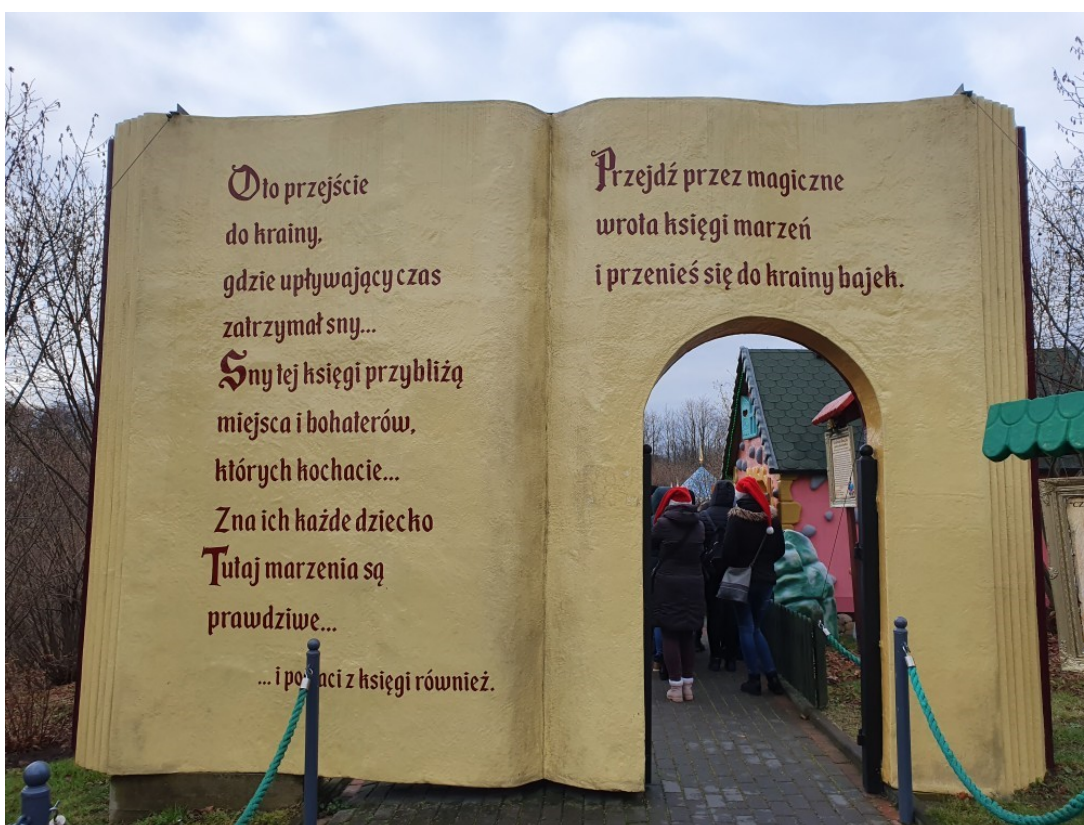 Oto przejście
do krainy,
gdzie upływający czas
zatrzymał sny...
Sny tej księgi przybliżą
miejsca i bohaterów,
których kochacie...
Zna ich każde dziecko
Tutaj marzenia są
prawdziwe...
... i z księgi również.
Przejdź przez magiczne
wrota księgi marzeń
i przenieś się do krainy bajek.